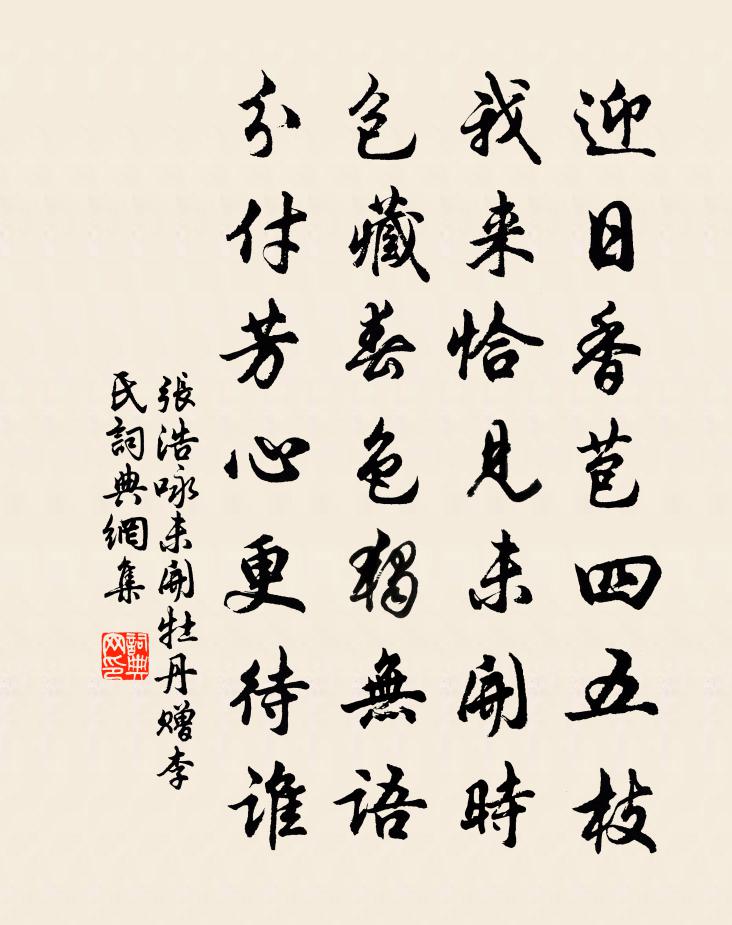 迎日香苞四五枝
我来恰見未開時
包藏春色獨無語
分付芳心更待誰
張浩咏未開牡丹赠李
氏詞典網集
詞典网印